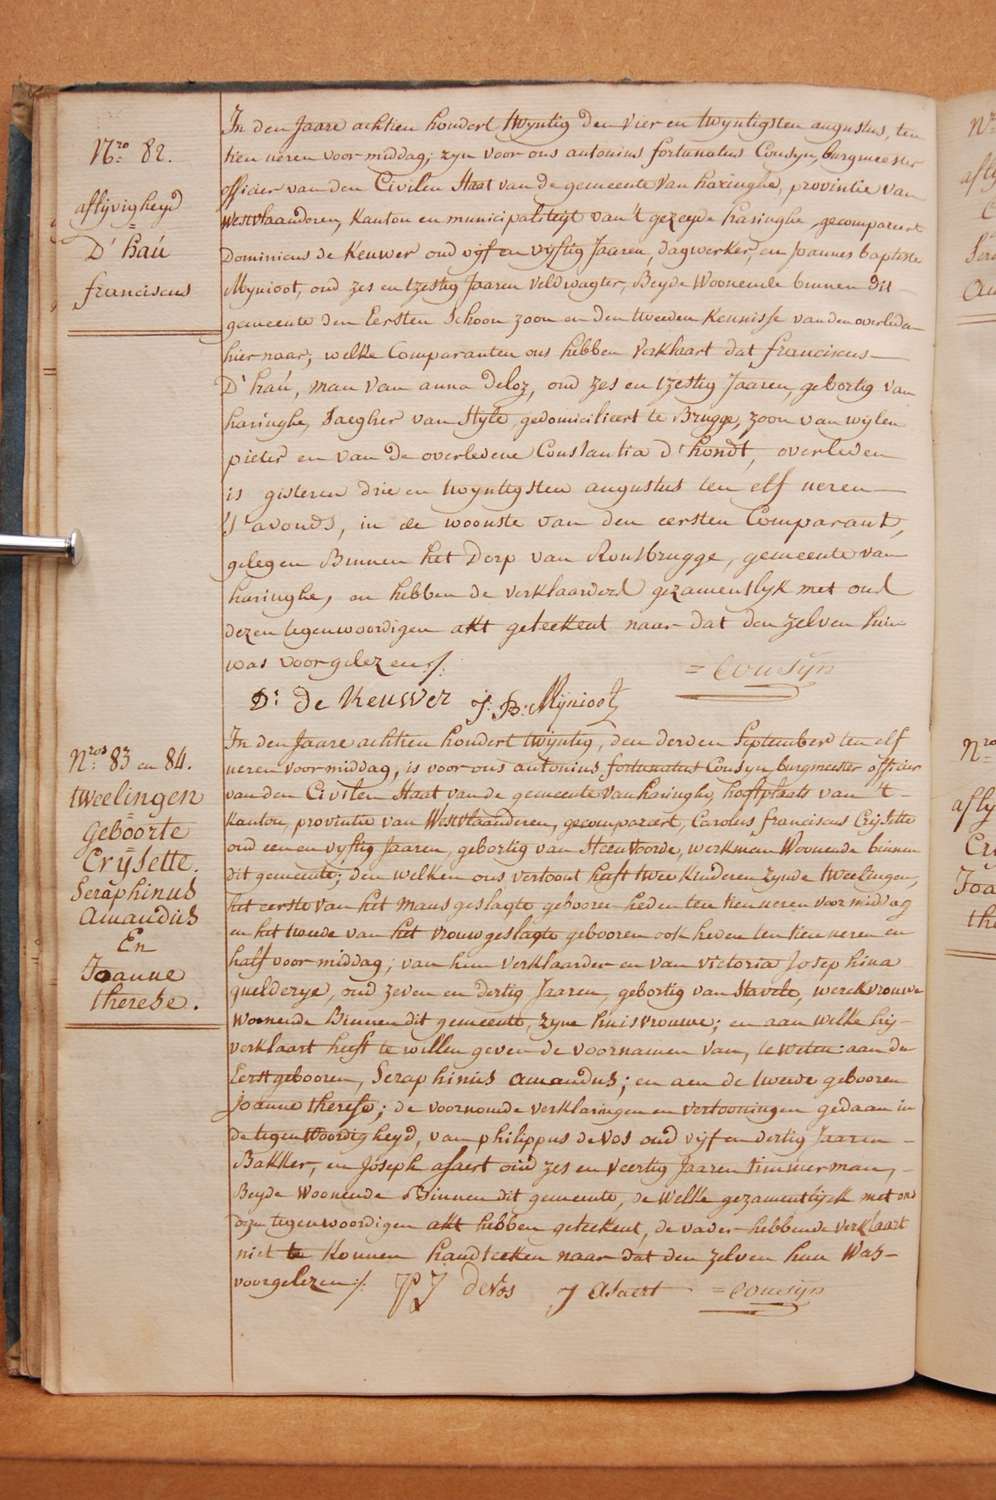 Nro 82.
aflyvigheyd
D'haú
franciscus
In den Jaare achtien hondert twyntig den vier en twyntigsten augustus, ten
tien ueren voormiddag; zyn voor ons antonius fortunatus Cousyn, burgmeester
officier van den Civilen Staat van de gemeente van haringhe, provintie van
Westvlaanderen, Kanton en municipaliteyt van 't gezeyde haringhe, gecompareert
Dominicus de Keuwer oud vyf en vyftig Jaaren, dagwerker, en Joannes baptiste
Mynioot, oud zes en tzestig Jaaren Veldwagter, Beyde Woonende binnen dit
gemeente den Eersten Schoon zoon en den tweeden Kennisse van den overleden
hier naar; welke Comparanten ons hebben verklaart dat franciscus
D'haú, man van anna Deloz, oud zes en tzestig Jaaren, gebortig van
haringhe, Saegher van Style, gedomicilieert te Brugge, zoon van wylen
pieter en van de overledene Constantia d'hondt, overleden
is gisteren drie en twyntigsten augustus ten elf ueren
S'avonds, in de woonste van den eersten Comparant,
gelegen Binnen het Dorp van Rousbrugge, gemeente van
haringhe, en hebben de verklaarders gezamentlyk met ons
dezen tegenwoordigen akt geteekent naar dat den zelven hun
was voorgelezen /.
= Cousyn
D: de Keuwer J: B: Mynioot
Nros 83 en 84.
tweelingen
Geboorte
Crijsette.
Seraphinus
Amandus
En
Joanne
therese.
In den Jaare achtien hondert twyntig, den derden September ten elf
ueren voormiddag, is voor ons antonius fortunatus Cousyn burgmeester officier
van den Civilen Staat van de gemeente van haringhe, hoofplaats van 't
kanton, provintie van Westvlaanderen, gecompareert, Carolus franciscus Crijsette
oud een en vyftig Jaaren, gebortig van Steenvoorde, werkman Woonende binnen
dit gemeente; den welken ons vertoont heeft twee Kinderen zynde tweelingen,
het eerste van het mansgeslagte gebooren heden ten tien ueren voormiddag
en het tweede van het vrouwgeslagte gebooren ook heden ten tien ueren en
half voormiddag; van hem verklaarder en van victoria Josephina
quelderye, oud zeven en dertig Jaaren, gebortig van Stavele, werckvrouwe
Woonende Binnen dit gemeente, zyne huisvrouwe; en aan welke hij
verklaart heeft te willen geven de voornamen van, te weten: aan den
Eerstgebooren, Seraphinus Amandus; en aen de tweede gebooren
Joanne therese; de voornoemde verklaringen en vertooningen gedaan in
de tegenwoordigheyd, van philippus de vos oud vijf en dertig Jaaren
Bakker, en Joseph asaert oud zes en veertig Jaaren timmerman,
Beyde Woonende Binnen dit gemeente, de Welke gezamentlijck met ons
dezen tegenwoordigen akt hebben geteekent, de vader hebbende verklaart
niet te Konnen handteeken naar dat den zelven hun Was
voorgelezen /. PJ DeVos J Asaert = Cousyn